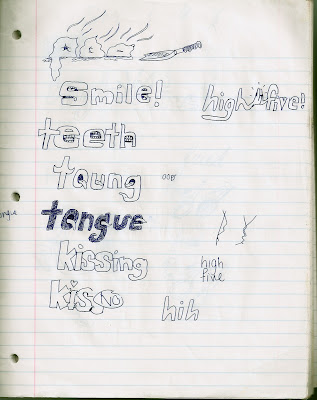 smile!
high five!
teeth
toung
oops
ongue
tongue
kissing
high
five
kiss NO
hih